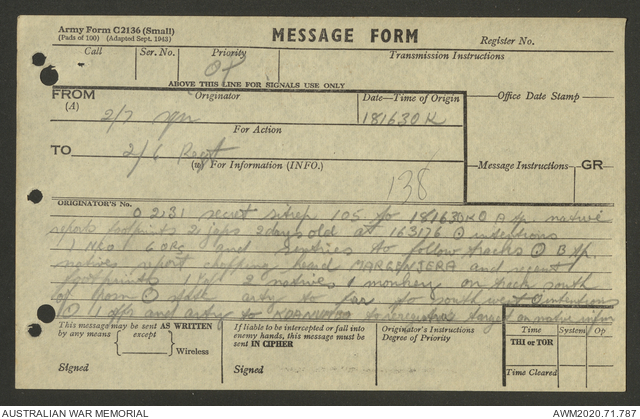 Army Form C2136 (Small)
(Pads of 100) (Adapted Sept. 1942)
MESSAGE FORM
Register No.
Call Ser. No. Priority Transmission Instructions
OP
ABOVE THIS LINE FOR SIGNALS USE ONLY
FROM (A) Originator Date—Time of Origin Office Date Stamp
2/7 181630K
For Action
TO 2/6 Regt
(W) For Information (INFO.) Message Instructions GR
138
ORIGINATOR'S No.
O 231 secret sitrep 105 to 181630K A Tp. native
reports footprints 2 japs 2 days old at 163176 intentions
1 NCO 6 ORS and sentries to follow tracks B Tp.
natives report chopping head MARGENJERA and recent
footprints 1 Jap 2 natives 1 monkey on track south
of arty to far to south west intentions
1 and arty to target on native infm
This message may be sent AS WRITTEN by any means except Wireless
If liable to be intercepted or fall into enemy hands, this message must be sent IN CIPHER
Originator's Instructions Degree of Priority
Time System Op
THI or TOR
Time Cleared
Signed Signed
AUSTRALIAN WAR MEMORIAL AWM2020.71.787